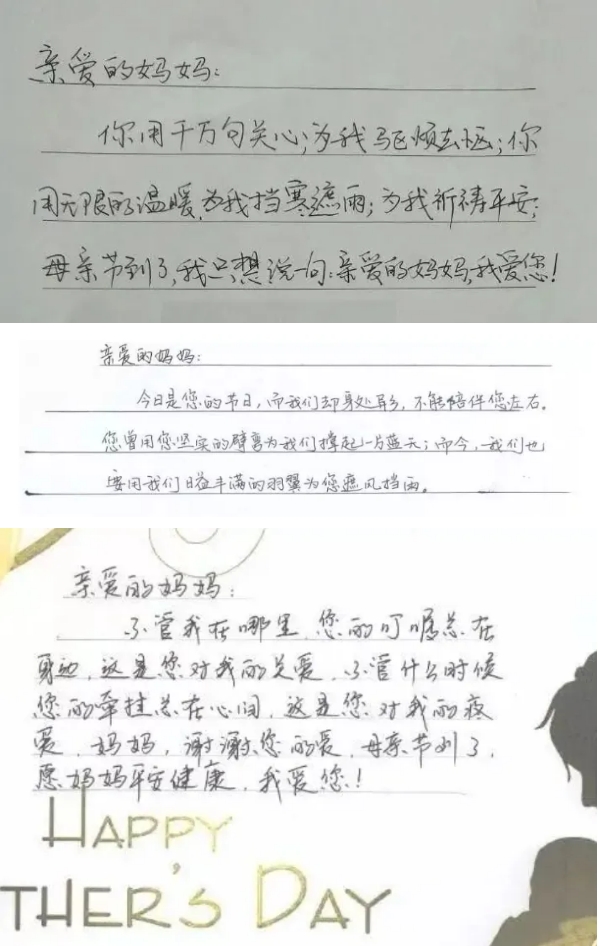 亲爱的妈妈:
你用千万句关心,为我驱烦去恼;你
用无限的温暖,为我挡寒遮雨;为我祈祷平安;
母亲节到了,我只想说一句:亲爱的妈妈,我爱您!
亲爱的妈妈:
今日是您的节日,而我们却身处异乡,不能陪伴您左右。
您曾用您坚实的臂弯为我们撑起一片蓝天;而今,我们也
要用我们日益丰满的羽翼为您遮风挡雨。
亲爱的妈妈:
不管我在哪里,您的叮嘱总在
身边,这是您对我的关爱,不管什么时候
您的牵挂总在心间,这是您对我的疼
爱,妈妈,谢谢您的爱,母亲节到了,
愿妈妈平安健康,我爱您!
HAPPY
THER'S DAY